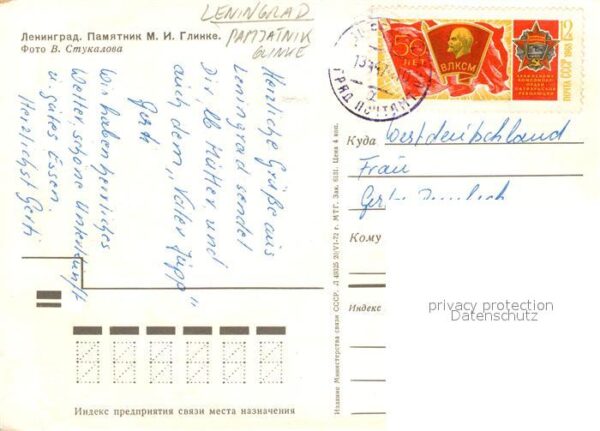 LENINGRAD
PAMJATNIK
GLINKE
Ленинград. Памятник М. И. Глинке.
Фото В. Стукалова
Herzliche Grüße aus
Leningrad sendet
Dir lb Mutter und
auch dem „Vater Jupp"
Gerti
Wir haben herrliches
Wetter, schöne Unterkunft
u. gutes Essen
Herzlichst Gerti
50
ЛЕТ
ВЛКСМ
12
ПОЧТА СССР 1968
Куда Westdeutschland
Frau
Кому
Индекс
privacy protection
Datenschutz
Издание Министерства связи СССР.
МТГ. Зак. 6131. Цена 4 коп.
Индекс предприятия связи места назначения